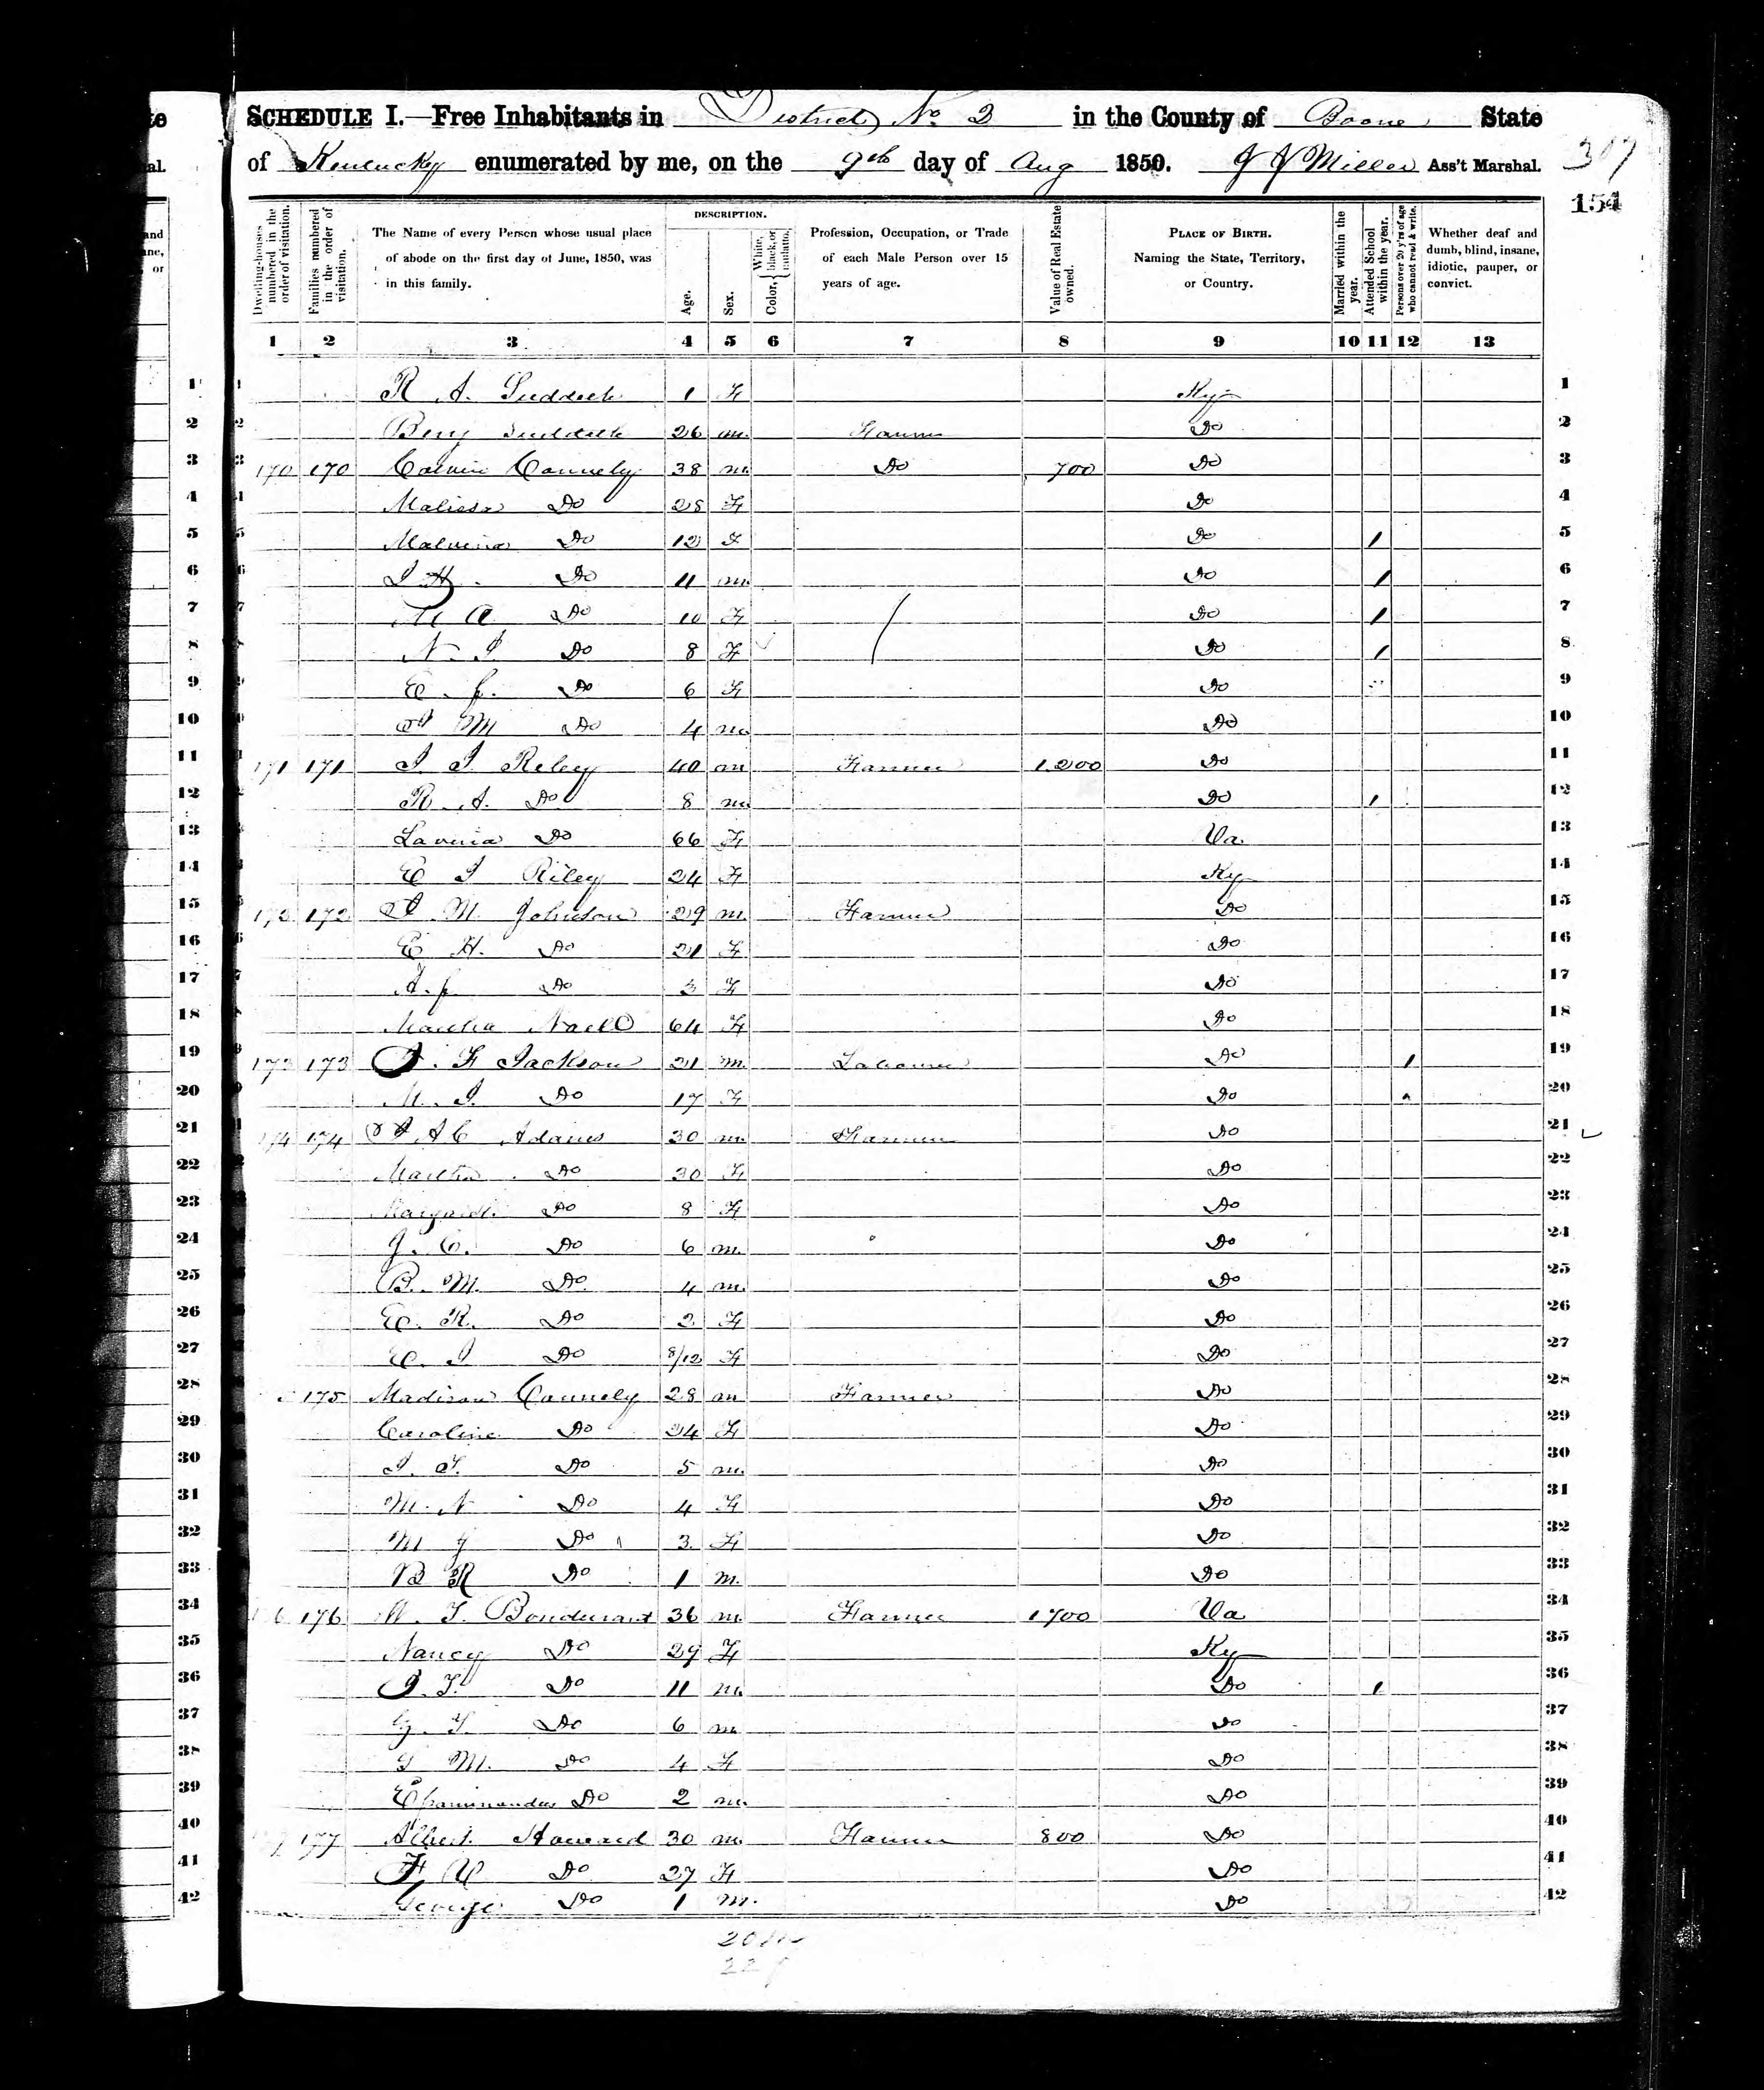 SCHEDULE I.—Free Inhabitants in District No 2 in the County of Boone State
of Kentucky enumerated by me, on the 9th day of Aug 1850. J J Miller Ass't Marshal.
307
154
Dwelling-houses numbered in the order of visitation.
Families numbered in the order of visitation.
The Name of every Person whose usual place of abode on the first day of June, 1850, was in this family.
DESCRIPTION.
Age.
Sex.
Color, White, black, or mulatto.
Profession, Occupation, or Trade of each Male Person over 15 years of age.
Value of Real Estate owned.
PLACE OF BIRTH. Naming the State, Territory, or Country.
Married within the year.
Attended School within the year.
Persons over 20 y'rs of age who cannot read & write.
Whether deaf and dumb, blind, insane, idiotic, pauper, or convict.
1 2 3 4 5 6 7 8 9 10 11 12 13
1 R A. Suddeth 1 F Ky 1
2 Berry Suddeth 26 m. Farmer Do 2
3 170 170 Calvin Connely 38 m. Do 700 Do 3
4 Malissa Do 28 F Do 4
5 Malvina Do 12 F Do 1 5
6 J H. Do 11 m. Do 1 6
7 M A Do 10 F Do 1 7
8 N. J Do 8 F Do 1 8
9 E. J. Do 6 F Do 9
10 M Do 4 m. Do 10
11 171 171 J J Riley 40 m Farmer 1200 Do 11
12 R. A. Do 8 m. Do 1 12
13 Lavinia Do 66 F Va. 13
14 E J Riley 24 F Ky 14
15 172 172 M. Johnson 29 m. Farmer Do 15
16 E H. Do 21 F Do 16
17 A. J Do 3 F Do 17
18 Martha 64 F Do 18
19 173 173 F Jackson 21 m. Labourer Do 1 19
20 M. J. Do 17 F Do 20
21 174 174 A C Adams 30 m. Farmer Do 21
22 Martha Do 30 F Do 22
23 Margaret Do 8 F Do 23
24 J. C. Do 6 m. Do 24
25 B. M. Do 4 m. Do 25
26 E. R. Do 2 F Do 26
27 E. J Do 8/12 F Do 27
28 175 Madison Connely 28 m Farmer Do 28
29 Caroline Do 24 F Do 29
30 J. T. Do 5 m. Do 30
31 M. N Do 4 F Do 31
32 M J Do 3 F Do 32
33 B R Do 1 m. Do 33
34 176 W. T. Bondurant 36 m. Farmer 1700 Va 34
35 Nancy Do 29 F Ky 35
36 J. T. Do 11 m. Do 1 36
37 G. T. Do 6 m Do 37
38 M. Do 4 F Do 38
39 Epaminandus Do 2 m. Do 39
40 177 Albert Howard 30 m. Farmer 800 Do 40
41 F Do 27 F Do 41
42 George Do 1 m. Do 42